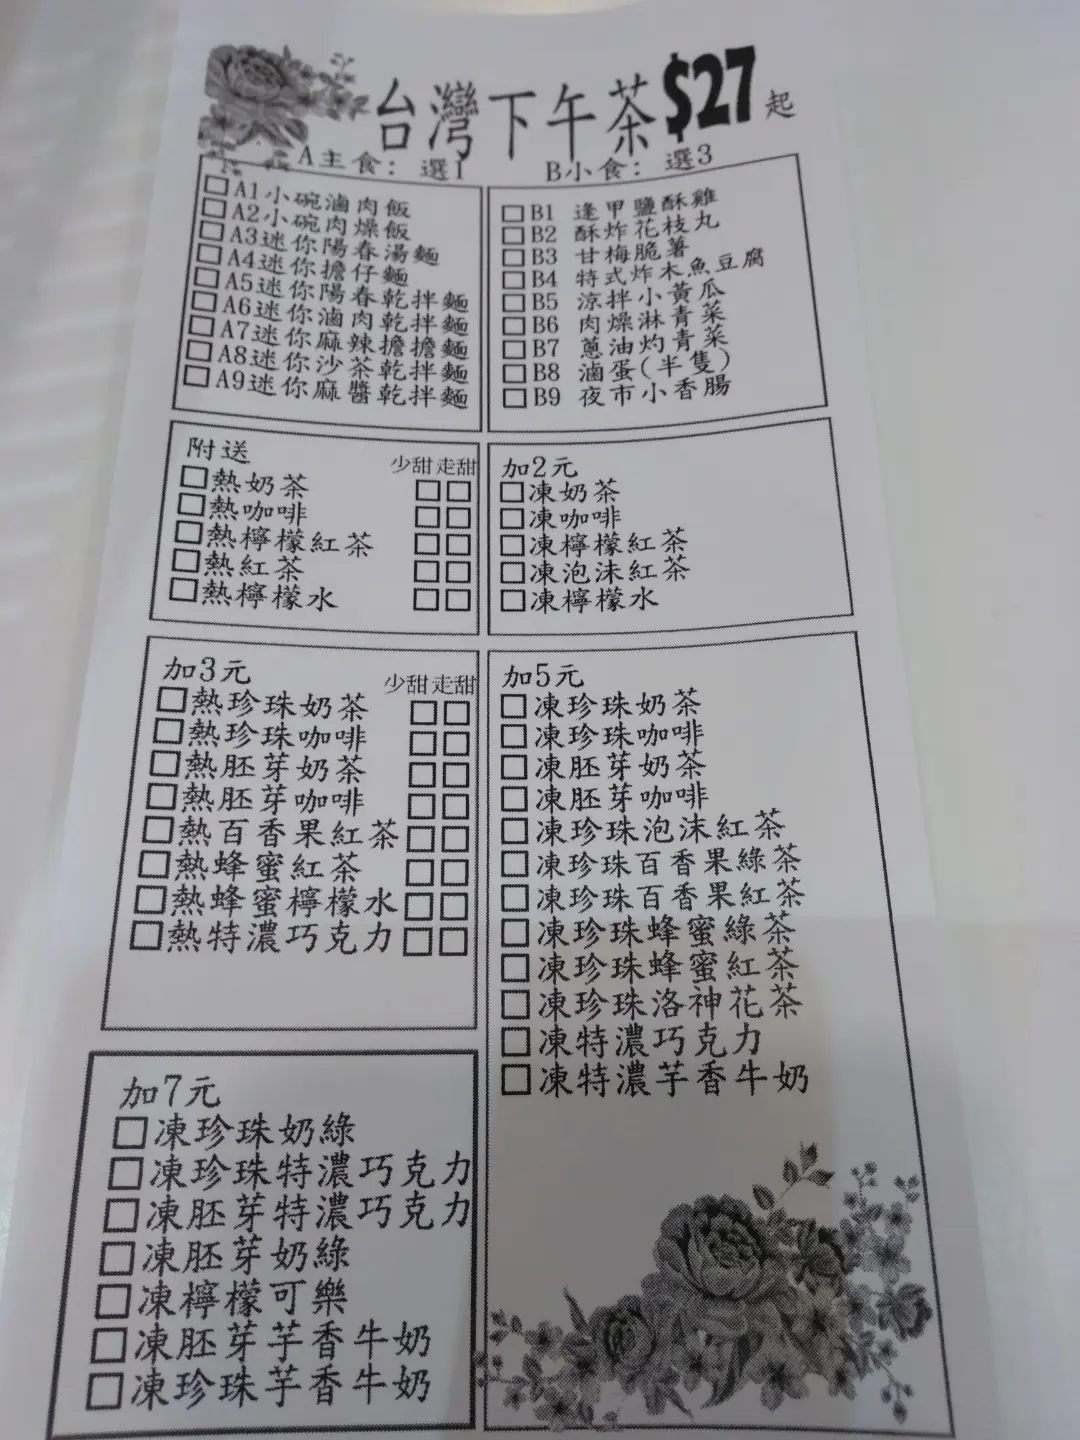 台灣下午茶$27起
A主食：選1
B小食：選3
A1小碗滷肉飯
A2小碗肉燥飯
A3迷你陽春湯麵
A4迷你擔仔麵
A5迷你陽春乾拌麵
A6迷你滷肉乾拌麵
A7迷你麻辣擔擔麵
A8迷你沙茶乾拌麵
A9迷你麻醬乾拌麵
B1 逢甲鹽酥雞
B2 酥炸花枝丸
B3 甘梅脆薯
B4 特式炸木魚豆腐
B5 涼拌小黃瓜
B6 肉燥淋青菜
B7 蔥油灼青菜
B8 滷蛋(半隻)
B9 夜市小香腸
附送 少甜 走甜
熱奶茶
熱咖啡
熱檸檬紅茶
熱紅茶
熱檸檬水
加2元
凍奶茶
凍咖啡
凍檸檬紅茶
凍泡沫紅茶
凍檸檬水
加3元 少甜 走甜
熱珍珠奶茶
熱珍珠咖啡
熱胚芽奶茶
熱胚芽咖啡
熱百香果紅茶
熱蜂蜜紅茶
熱蜂蜜檸檬水
熱特濃巧克力
加5元
凍珍珠奶茶
凍珍珠咖啡
凍胚芽奶茶
凍胚芽咖啡
凍珍珠泡沫紅茶
凍珍珠百香果綠茶
凍珍珠百香果紅茶
凍珍珠蜂蜜綠茶
凍珍珠蜂蜜紅茶
凍珍珠洛神花茶
凍特濃巧克力
凍特濃芋香牛奶
加7元
凍珍珠奶綠
凍珍珠特濃巧克力
凍胚芽特濃巧克力
凍胚芽奶綠
凍檸檬可樂
凍胚芽芋香牛奶
凍珍珠芋香牛奶